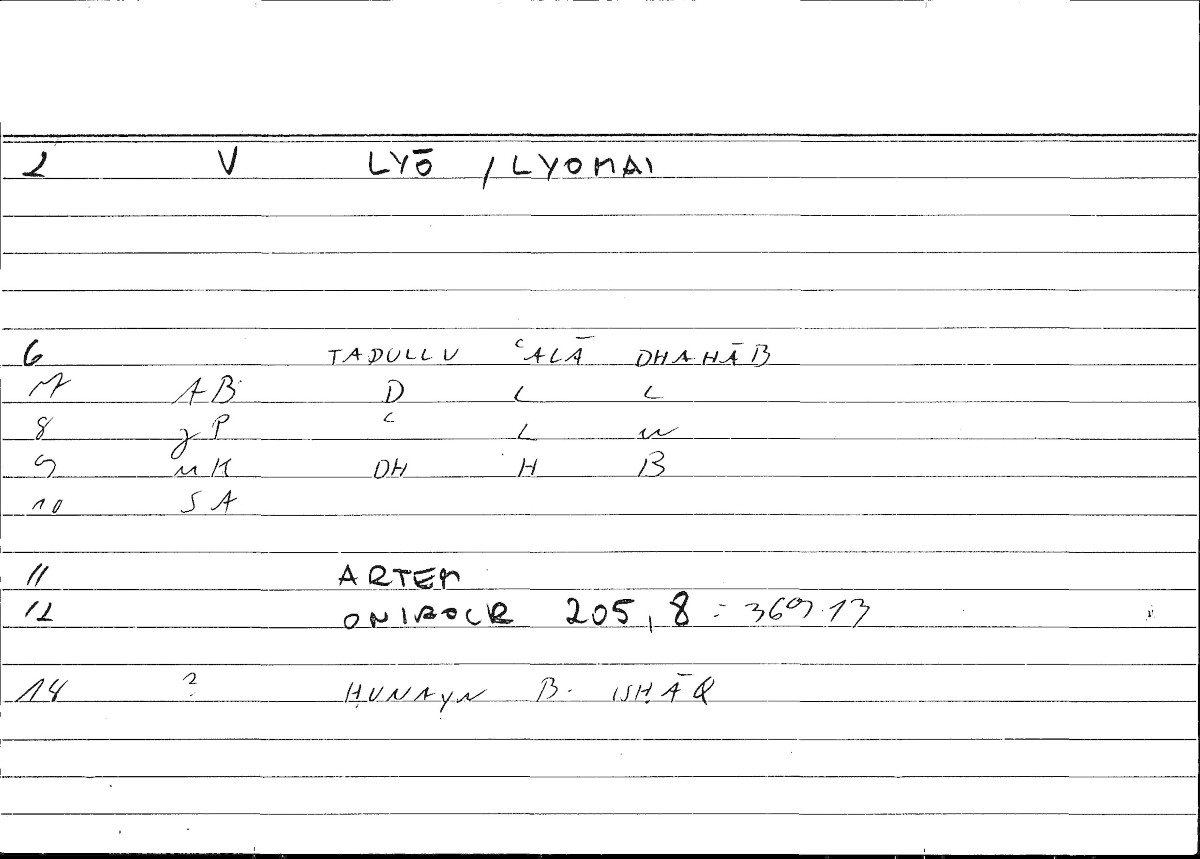 2 V LYŌ / LYOMAI
6 TADULLU ʿALĀ DHAHĀB
7 AB D L L
8 gP ʿ L w
9 uK DH H B
10 SA
11 ARTEM
12 ONIROCR 205, 8 = 369.13
14 ? ḤUNAYN B. ISḤĀQ